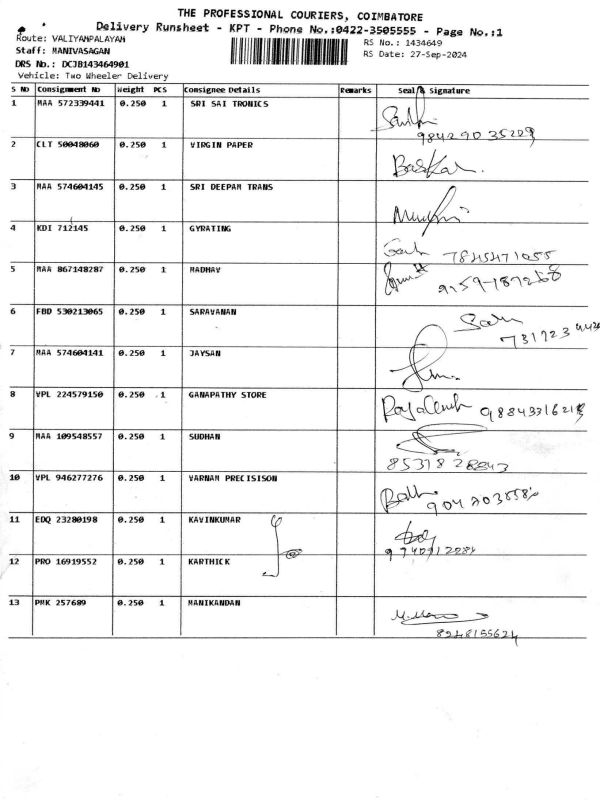 THE PROFESSIONAL COURIERS, COIMBATORE
Delivery Runsheet - KPT - Phone No.:0422-3505555 - Page No.:1
Route: VALIYAMPALAYAM
RS No.: 1434649
Staff: MANIVASAGAN
RS Date: 27-Sep-2024
DRS No.: DCJB143464901
Vehicle: Two Wheeler Delivery
S No Consignment No Weight PCS Consignee Details Remarks Seal Signature
1 MAA 572339441 0.250 1 SRI SAI TRONICS
2 CLT 50048060 0.250 1 VIRGIN PAPER Baskar.
3 MAA 574604145 0.250 1 SRI DEEPAM TRANS
4 KDI 712145 0.250 1 GYRATING
7845471055
5 MAA 867148287 0.250 1 MADHAV
6 FBD 530213065 0.250 1 SARAVANAN
7 MAA 574604141 0.250 1 JAYSAN
8 VPL 224579150 0.250 1 GANAPATHY STORE
9 MAA 109548557 0.250 1 SUDHAN
10 VPL 946277276 0.250 1 VARNAM PRECISISON
11 EDQ 23280198 0.250 1 KAVINKUMAR
12 PRO 16919552 0.250 1 KARTHICK
13 PMK 257689 0.250 1 MANIKANDAN
8248155624